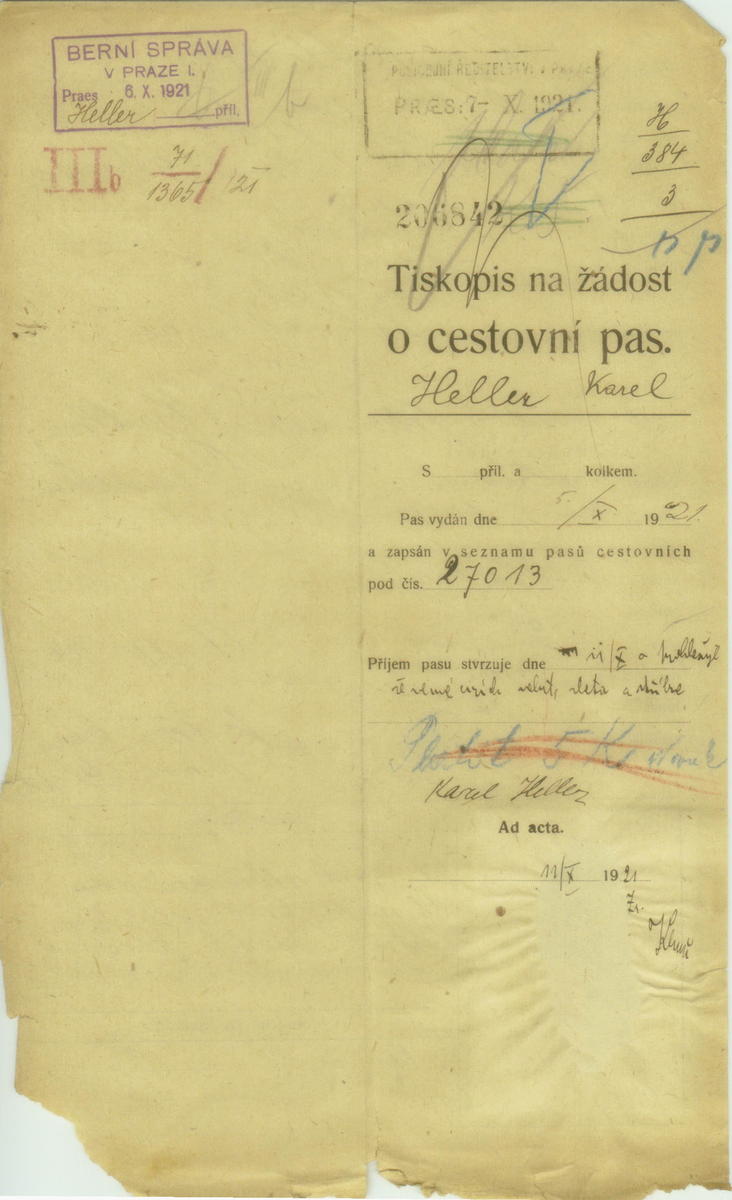 BERNÍ SPRÁVA
V PRAZE I.
Praes 6. X. 1921
Heller příl.
IIIb 71
1365 / 21
POLICEJNÍ ŘEDITELSTVÍ V PRAZE
PRÆS: 7- X. 1921.
H
384
3
206842
Tiskopis na žádost
o cestovní pas.
Heller Karel
S příl. a kolkem.
Pas vydán dne 5. / X 1921.
a zapsán v seznamu pasů cestovních
pod čís. 27013
Příjem pasu stvrzuje dne 11/X a
5 K
Karel Heller
Ad acta.
11/X 1921